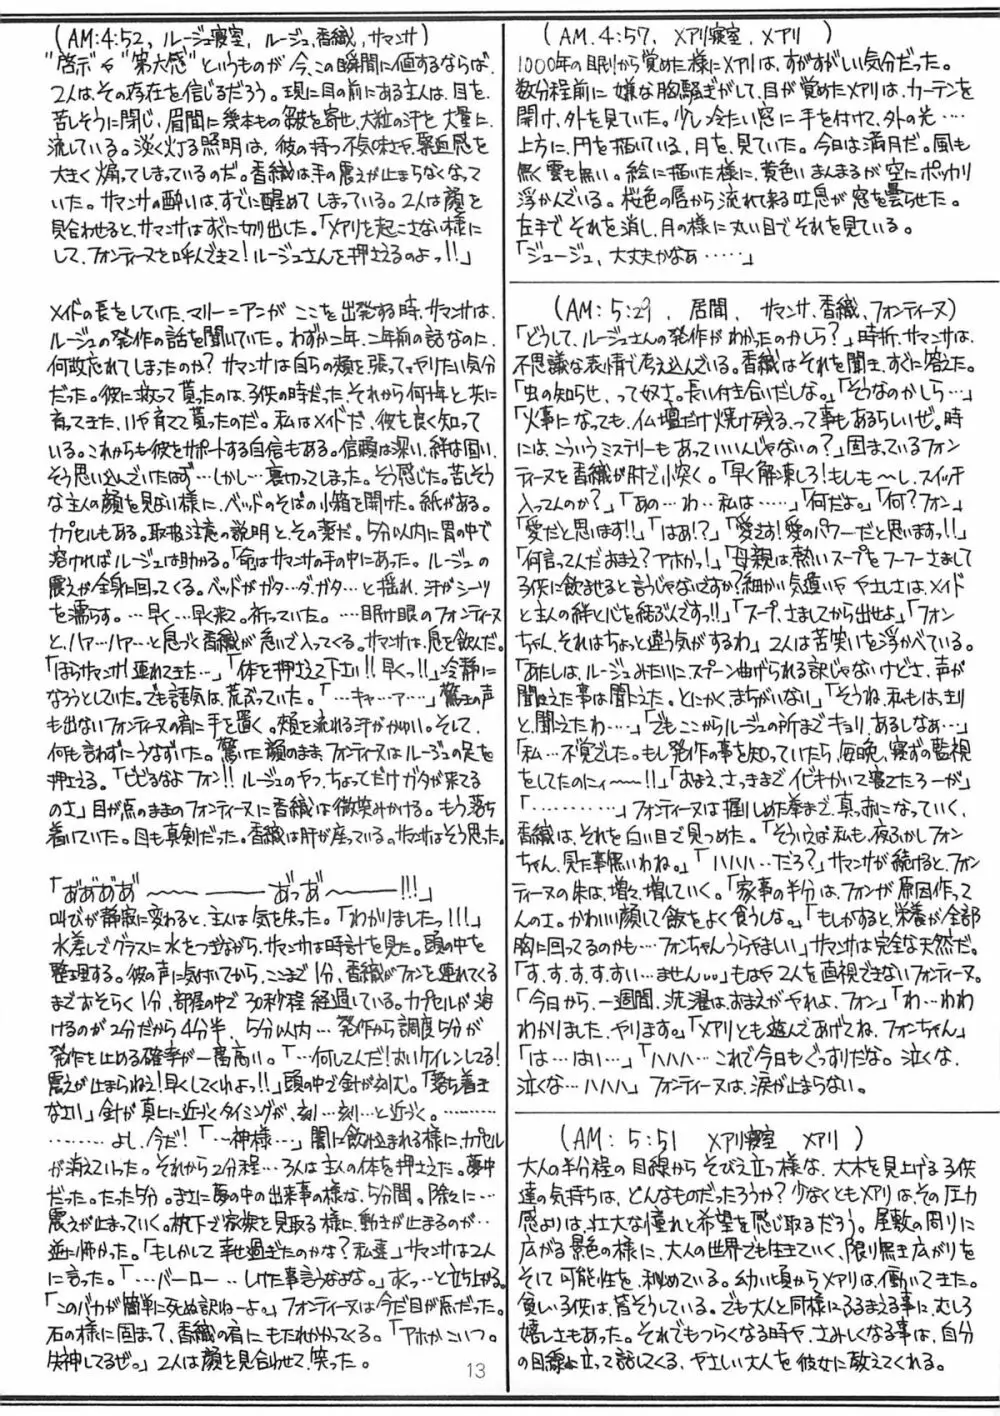 (AM:4:52, ルージュ寝室, ルージュ,香織,サマンサ)
"啓示"や"第六感"というものが今、この瞬間に値するならば、
2人は、その存在を信じるだろう。現に目の前にある主人は、目を、
苦しそうに閉じ、眉間に幾本もの皺を寄せ、大粒の汗を大量に、
流している。淡く灯る照明は、彼の持つ不気味さや、緊迫感を
大きく煽ってしまっているのだ。香織は手の震えが止まらなくなって
いた。サマンサの酔いは、すでに醒めてしまっている。2人は顔を
見合わせると、サマンサはすぐに切り出した。「メアリを起こさない様に
して、フォンティーヌを呼んできて!ルージュさんを押さえるのよっ!!」
メイドの長をしていた、マリー=アンが ここを出発する時、サマンサは、
ルージュの発作の話を聞いていた。わずか二年、二年前の話なのに、
何故忘れてしまったのか? サマンサは自らの頬を張ってやりたい気分
だった。彼に救って貰ったのは、子供の時だった、それから何十年と共に
育ってきた、いや育てて貰ったのだ。私はメイドだ、彼を良く知って
いる。これからも彼をサポートする自信もある。信頼は深い、絆は固い、
そう思い込んでいたはず…しかし…裏切ってしまった。そう感じた。苦しそう
な主人の顔を見ない様に、ベッドのそばの小箱を開けた。紙がある。
カプセルもある。取扱注意の説明と、その薬だ。5分以内に胃の中で
溶ければルージュは助かる。「命はサマンサの手の中にあった。ルージュの
震えが全身に回ってくる。ベッドがガタ…ダ.ガタ…と揺れ、汗がシーツ
を濡らす。…早く…早く来て。祈っていた。……眠け眼のフォンティーヌ
と、ハァ…ハァ…と息づく香織が急いで入ってくる。サマンサは、息を飲んだ。
「ほらサマンサ!連れてきた…」「体を押さえて下さい!!早くっ!!」冷静に
なろうとしていた。でも語気は、荒ぶっていた。「…キャ…ァ…」驚きの声
も出ないフォンティーヌの肩に手を置く。頬を流れる汗がかゆい。そして、
何も言わずにうなずいた。驚いた顔のまま、フォンティーヌはルージュの足を
押さえる。「ビビるなよフォン!! ルージュのやつ、ちょってだけガタが来てる
のさ」目が点のままのフォンティーヌに香織は微笑みかける。もう落ち
着いていた。目も真剣だった。香織は肝が座っている。サマンサはそう思った。
「あ゛あ゛あ゛あ゛〜〜 ―― あ゛っあ゛〜――!!!」
叫びが静寂に変わると、主人は気を失った。「わかりましたっ!!!」
水差しでグラスに水をつぎながら、サマンサは時計を見た。頭の中を
整理する。彼の声に気付いてから、ここまで1分、香織がフォンを連れてくる
までおそらく1分、部屋の中で30秒程経過している。カプセルが溶
けるのが2分だから4分半、5分以内… 発作から調度5分が
発作を止める確率が一番高い。「…何してんだ!おいケイレンしてる!
震えが止まらねぇ!早くしてくれよっ!!」頭の中で針が刻む。「落ち着き
なさい」針が真上に近づくタイミングが、刻…刻…と近づく。…………
…………よし、今だ!「…神様…」闇に飲み込まれる様に、カプセル
が消えていった。それから2分程…3人は主人の体を押さえた。夢中
だった。たった5分。まさに夢の中の出来事の様な、5分間。除々に…
震えが止まっていく。枕下で家族を見取る様に、動きが止まるのが‥
逆に怖かった。「もしかして幸せ過ぎたのかな?私達」サマンサは2人
に言った。「…バーロー‥しけた事言うなよな。」すくっ…と立ち上がる。
「このバカが簡単に死ぬ訳ねーよ。」フォンティーヌは今だ目が点だった。
石の様に固まって、香織の肩にもたれかかってくる。「アホかこいつ。
失神してるぜ。」2人は顔を見合わせて、笑った。
(AM.4:57, メアリ寝室, メアリ )
1000年の眠りから覚めた様にメアリは、すがすがしい気分だった。
数分程前に 嫌な胸騒ぎがして、目が覚めたメアリは、カーテンを
開け、外を見ていた。少し冷たい窓に手を付けて、外の光‥‥
上方に、円を描いている、月を、見ていた。今日は満月だ。風も
無く雲も無い。絵に描いた様に、黄色いまんまるが空にポッカリ
浮かんでいる。桜色の唇から流れて来る吐息が窓を曇らせた。
左手でそれを消し、月の様に丸い目でそれを見ている。
「ジュージュ、大丈夫かなぁ‥‥‥」
(AM:5:29, 居間, サマンサ,香織,フォンティーヌ)
「どうして、ルージュさんの発作がわかったのかしら?」時折、サマンサは、
不思議な表情で考え込んでいる。香織はそれを聞き、すぐに答えた。
「虫の知らせ、って奴さ。長い付き合いだしな。」「そうなのかしら…」
「火事になっても、仏壇だけ焼け残る、って事もあるらしいぜ。時
には、こういうミステリーもあっていいんじゃないの?」固まっているフォン
ティーヌを香織が肘で小突く。「早く解凍しろ!もしも〜し、スイッチ
入ってんのか?」「あの…わ‥私は……」「何だよ。」「何?フォン」
「愛だと思います!!」「はあ!?」「愛です!愛のパワーだと思いますっ!!」
「何言ってんだおまえ?アホかっ!」「母親は、熱いスープをフーフーさまして
子供に飲ませると言うじゃないですか?細かい気遣いややさしさは、メイド
と主人の絆と心を結ぶんですっ!!」「スープ、さましてから出せよ。」「フォン
ちゃん、それはちょっと違う気がするわ」2人は苦笑いを浮かべている。
「あたしは、ルージュみたいに、スプーン曲げられる訳じゃないけどさ、声が
聞こえた事は聞こえた。とにかく、まちがいない」「そうね、私もは、きり
と、聞こえたわ…」「でもここからルージュの所までキョリ、あるしなぁ…」
「私…不覚でした。もし発作の事を知っていたら、毎晩、寝ずの監視
をしてたのにィ〜――!!」「おまえ、さっきまでイビキかいて寝てたろーが」
「…………」フォンティーヌは握りしめた拳まで、真っ赤になっていく、
香織は、それを白い目で見つめた。「そういえば私も、夜ふかしフォン
ちゃん、見た事無いわね。」「ハハハ‥だろ?」サマンサが続けると、フォン
ティーヌの朱は、増々、増していく。「家事の半分は、フォンが原因作って
んのさ。かわいい顔して飯をよく食うしな。」「もしかすると、栄養が全部
胸に回ってるのかも…フォンちゃんうらやましい」サマンサは完全な天然だ。
「す.す.す.す.すい…ません‥」もはや2人を直視できないフォンティーヌ。
「今日から、一週間、洗濯は、おまえがやれよ、フォン」「わ…わわわ
わかりました、やります。」「メアリとも遊んであげてね、フォンちゃん」
「は…はい…」「ハハハ…これで今日もぐっすりだな。泣くな、
泣くな…ハハハ」フォンティーヌは、涙が止まらない。
(AM: 5:51 メアリ寝室 メアリ )
大人の半分程の目線からそびえ立つ様な、大木を見上げる子供
達の気持ちは、どんなものだったろうか?少なくともメアリは、その圧力
感よりは、壮大な憧れと希望を感じ取るだろう。屋敷の周りに
広がる景色の様に、大人の世界でも生きていく、限り無き広がりを
そして可能性を、秘めている。幼い頃からメアリは、働いてきた。
貧しい子供は、皆そうしている。でも大人と同様にふるまえる事に、むしろ
嬉しさもあった。それでもつらくなる時や、さみしくなる事は、自分
の目線に立って話してくる、やさしい大人を彼女に教えてくれる。
13